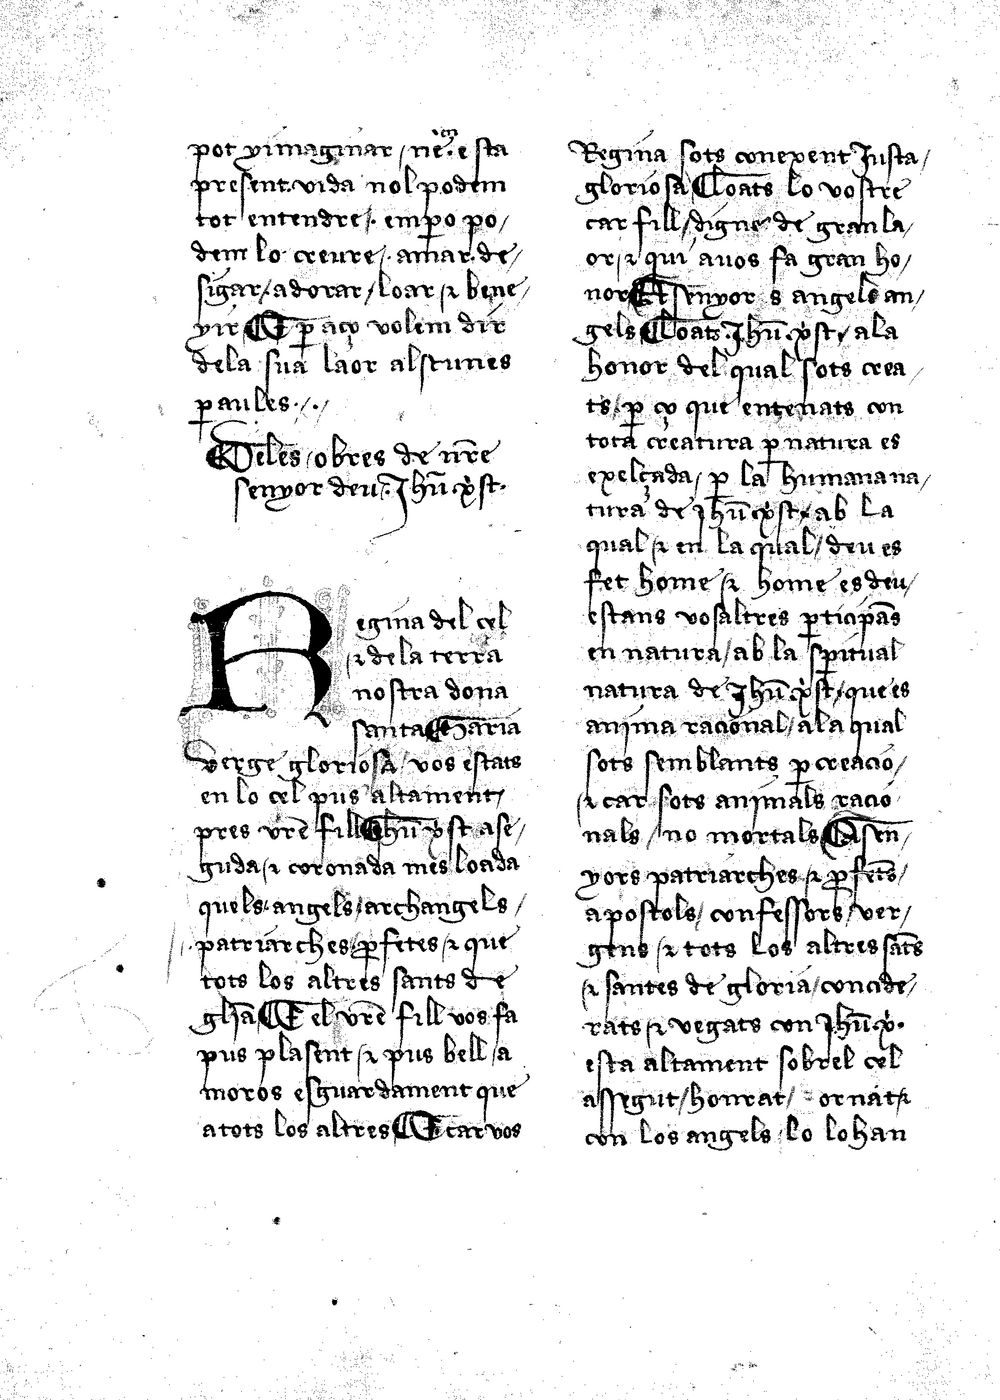 pot yimaginar / ne en esta
present vida nol podem
tot entendre /. emꝑo po /
dem lo creure /. amar. de /
sigar / adorar / loar ⁊ bene /
yir E ꝑ aço volem dir
dela sua laor alscunes
ꝑaules ././
Deles obres de nr̄e
senyor deu Jhū xp̄st.
Regina del cel
⁊ dela terra
nostra dona
santa Maria
verge gloriosa / vos estats
en lo cel pus altament /
pres vr̄e fill Jhū xp̄st ase /
guda / ⁊ coronada mes loada
quels angels / archangels /
patriarches / ꝓfetes / ⁊ que
tots los altres sants de
glīa E el vr̄e fill vos fa
pus plasent / ⁊ pus bell / a
moros esguardament que
atots los altres E car vos
Regina sots conexent Justa /
gloriosa Loats lo vostre
car fill / digne de gran la /
or / ⁊ qui auos fa gran ho /
nor Et senyor s angels an /
gels Loats Jhū xp̄st / ala
honor del qual sots crea /
ts / ꝑ ço que entenats con
tota creatura ꝑ natura es
exelçada / ꝑ la humanana /
tura de jhū xp̄st / ab la
qual / ⁊ en la qual / deu es
fet home / ⁊ home es deu /
estans vosaltres ꝑticipās
en natura / ab la sp̄itual
natura de Jhū xp̄st / que es
anima racional / ala qual
sots semblants ꝑ creacio /
⁊ car sots animals racio
nals / no mortals E a sen̄ /
yors patriarches / ⁊ ꝓfets /
apostols / confessors / ver /
gens / ⁊ tots los altres sāts
⁊ santes de gloria / conside /
rats / ⁊ vegats con Jhū xp̄.
esta altament sobrel cel
assegut / honrat / ornat / ⁊
con los angels / lo lohan